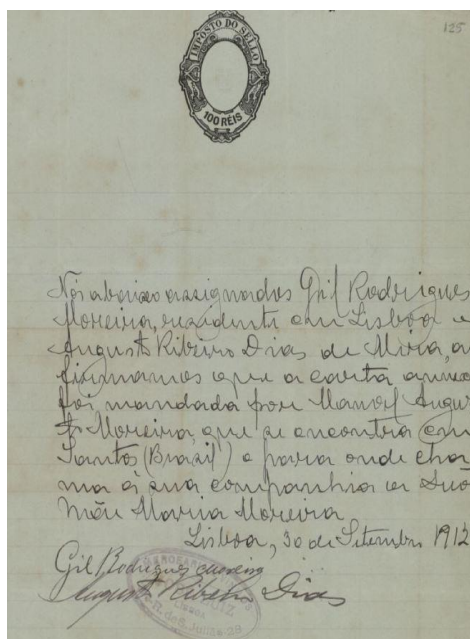 125
IMPOSTO DO SELLO
100 RÉIS
Nós abaixo assignados Gil Rodrigues
Moreira, residente em Lisboa e
Augusto Ribeiro Dias de Mira, a
firmamos que a carta anexa
foi mandada por Manoel Augus
to Moreira, que se encontra em
Santos (Brazil) e para onde cha
ma á sua companhia a sua
Mãe Maria Moreira
Lisboa, 30 de Setembro 1912
Gil Rodrigues Moreira
Augusto Ribeiro Dias
R. de S. Julião-28